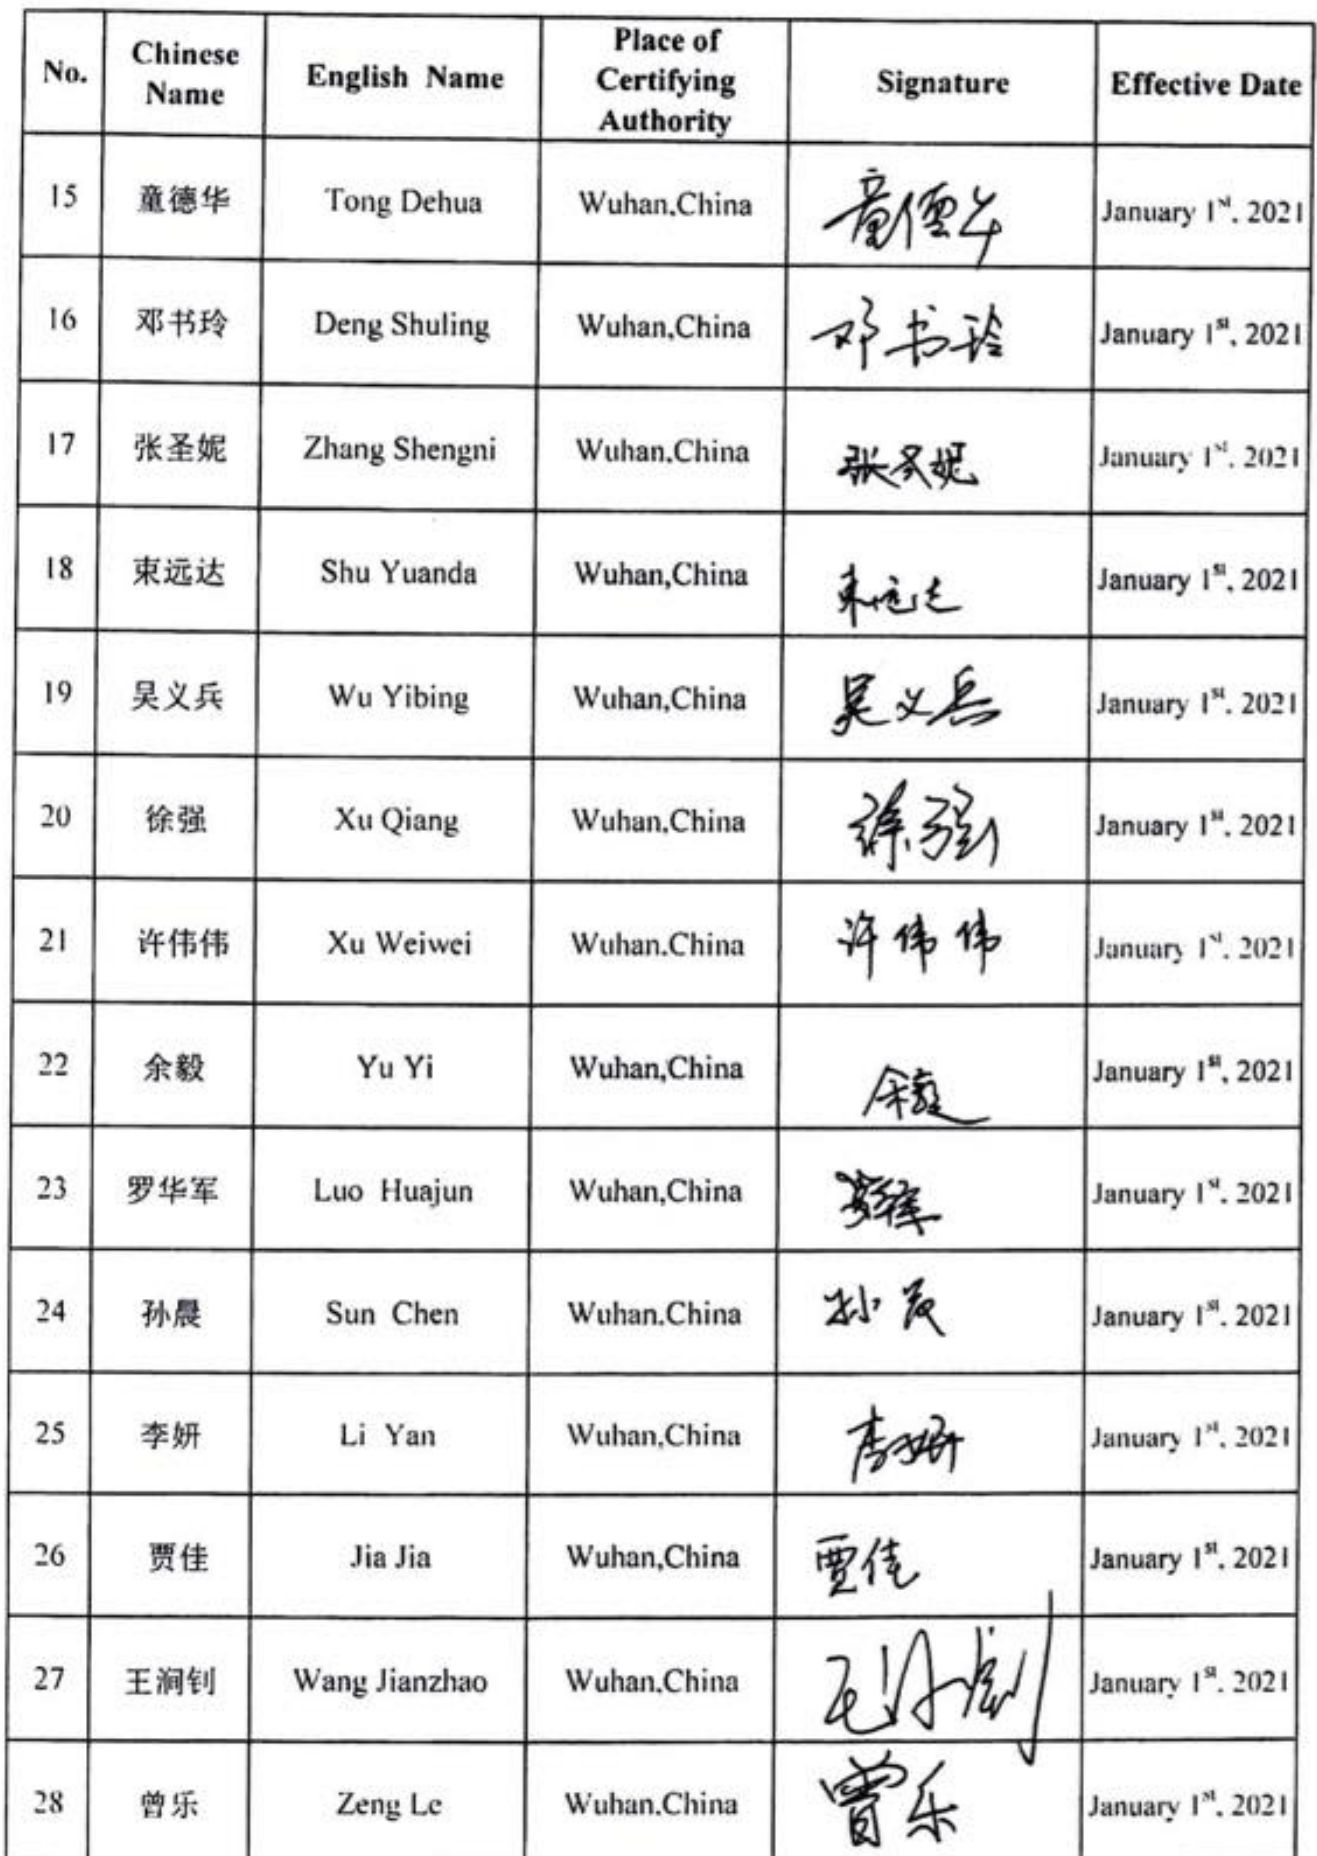 No. Chinese Name English Name Place of Certifying Authority Signature Effective Date
15 童德华 Tong Dehua Wuhan,China 童德华 January 1st, 2021
16 邓书玲 Deng Shuling Wuhan,China 邓书玲 January 1st, 2021
17 张圣妮 Zhang Shengni Wuhan,China 张圣妮 January 1st, 2021
18 束远达 Shu Yuanda Wuhan,China 束远达 January 1st, 2021
19 吴义兵 Wu Yibing Wuhan,China 吴义兵 January 1st, 2021
20 徐强 Xu Qiang Wuhan,China 徐强 January 1st, 2021
21 许伟伟 Xu Weiwei Wuhan,China 许伟伟 January 1st, 2021
22 余毅 Yu Yi Wuhan,China 余毅 January 1st, 2021
23 罗华军 Luo Huajun Wuhan,China 罗华军 January 1st, 2021
24 孙晨 Sun Chen Wuhan,China 孙晨 January 1st, 2021
25 李妍 Li Yan Wuhan,China 李妍 January 1st, 2021
26 贾佳 Jia Jia Wuhan,China 贾佳 January 1st, 2021
27 王涧钊 Wang Jianzhao Wuhan,China January 1st, 2021
28 曾乐 Zeng Le Wuhan,China 曾乐 January 1st, 2021